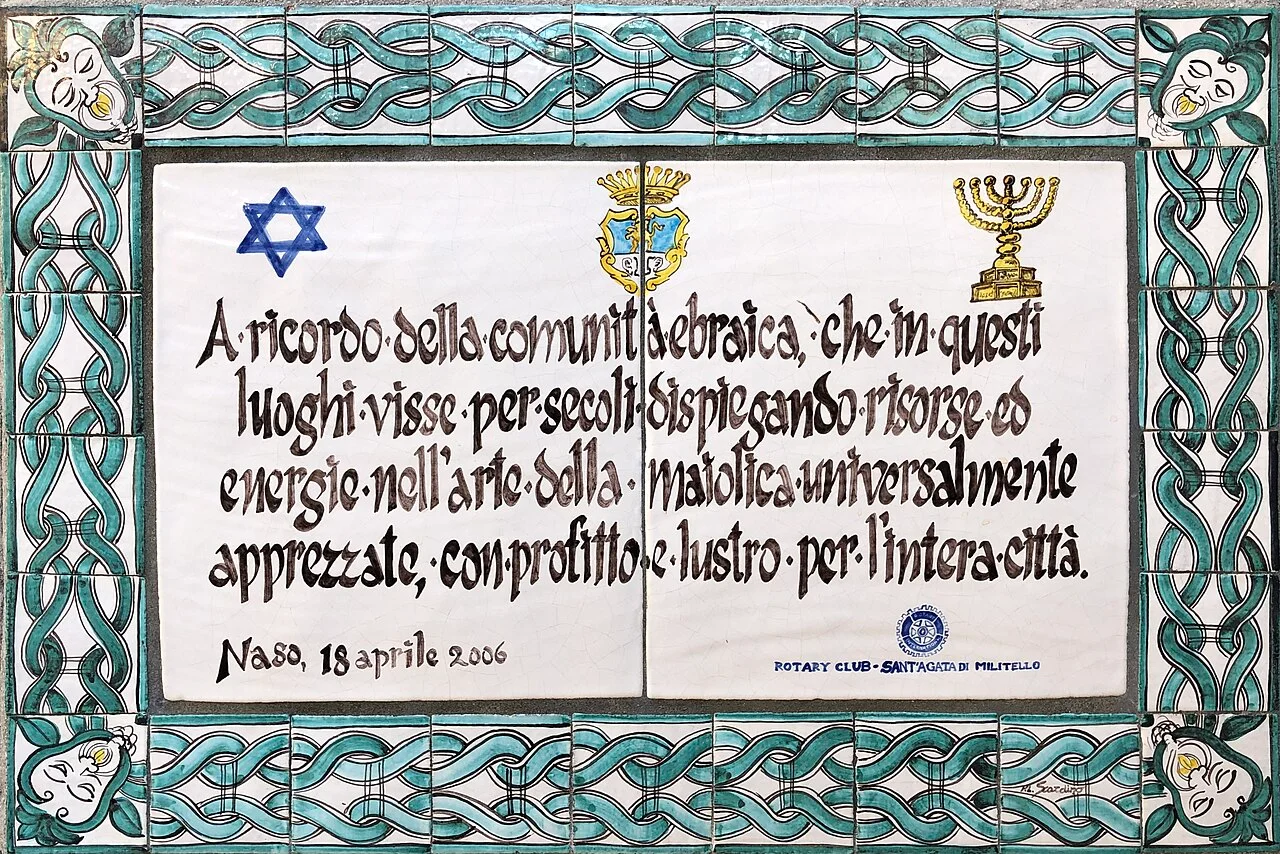 A·ricordo·della·comunità·ebraica,·che·in·questi
luoghi·visse·per·secoli·dispiegando·risorse·ed
energie·nell'arte·della·maiolica·universalmente
apprezzate,·con·profitto·e·lustro·per·l'intera·città.
Naso, 18 aprile 2006
ROTARY CLUB - SANT'AGATA DI MILITELLO
M. Scardino